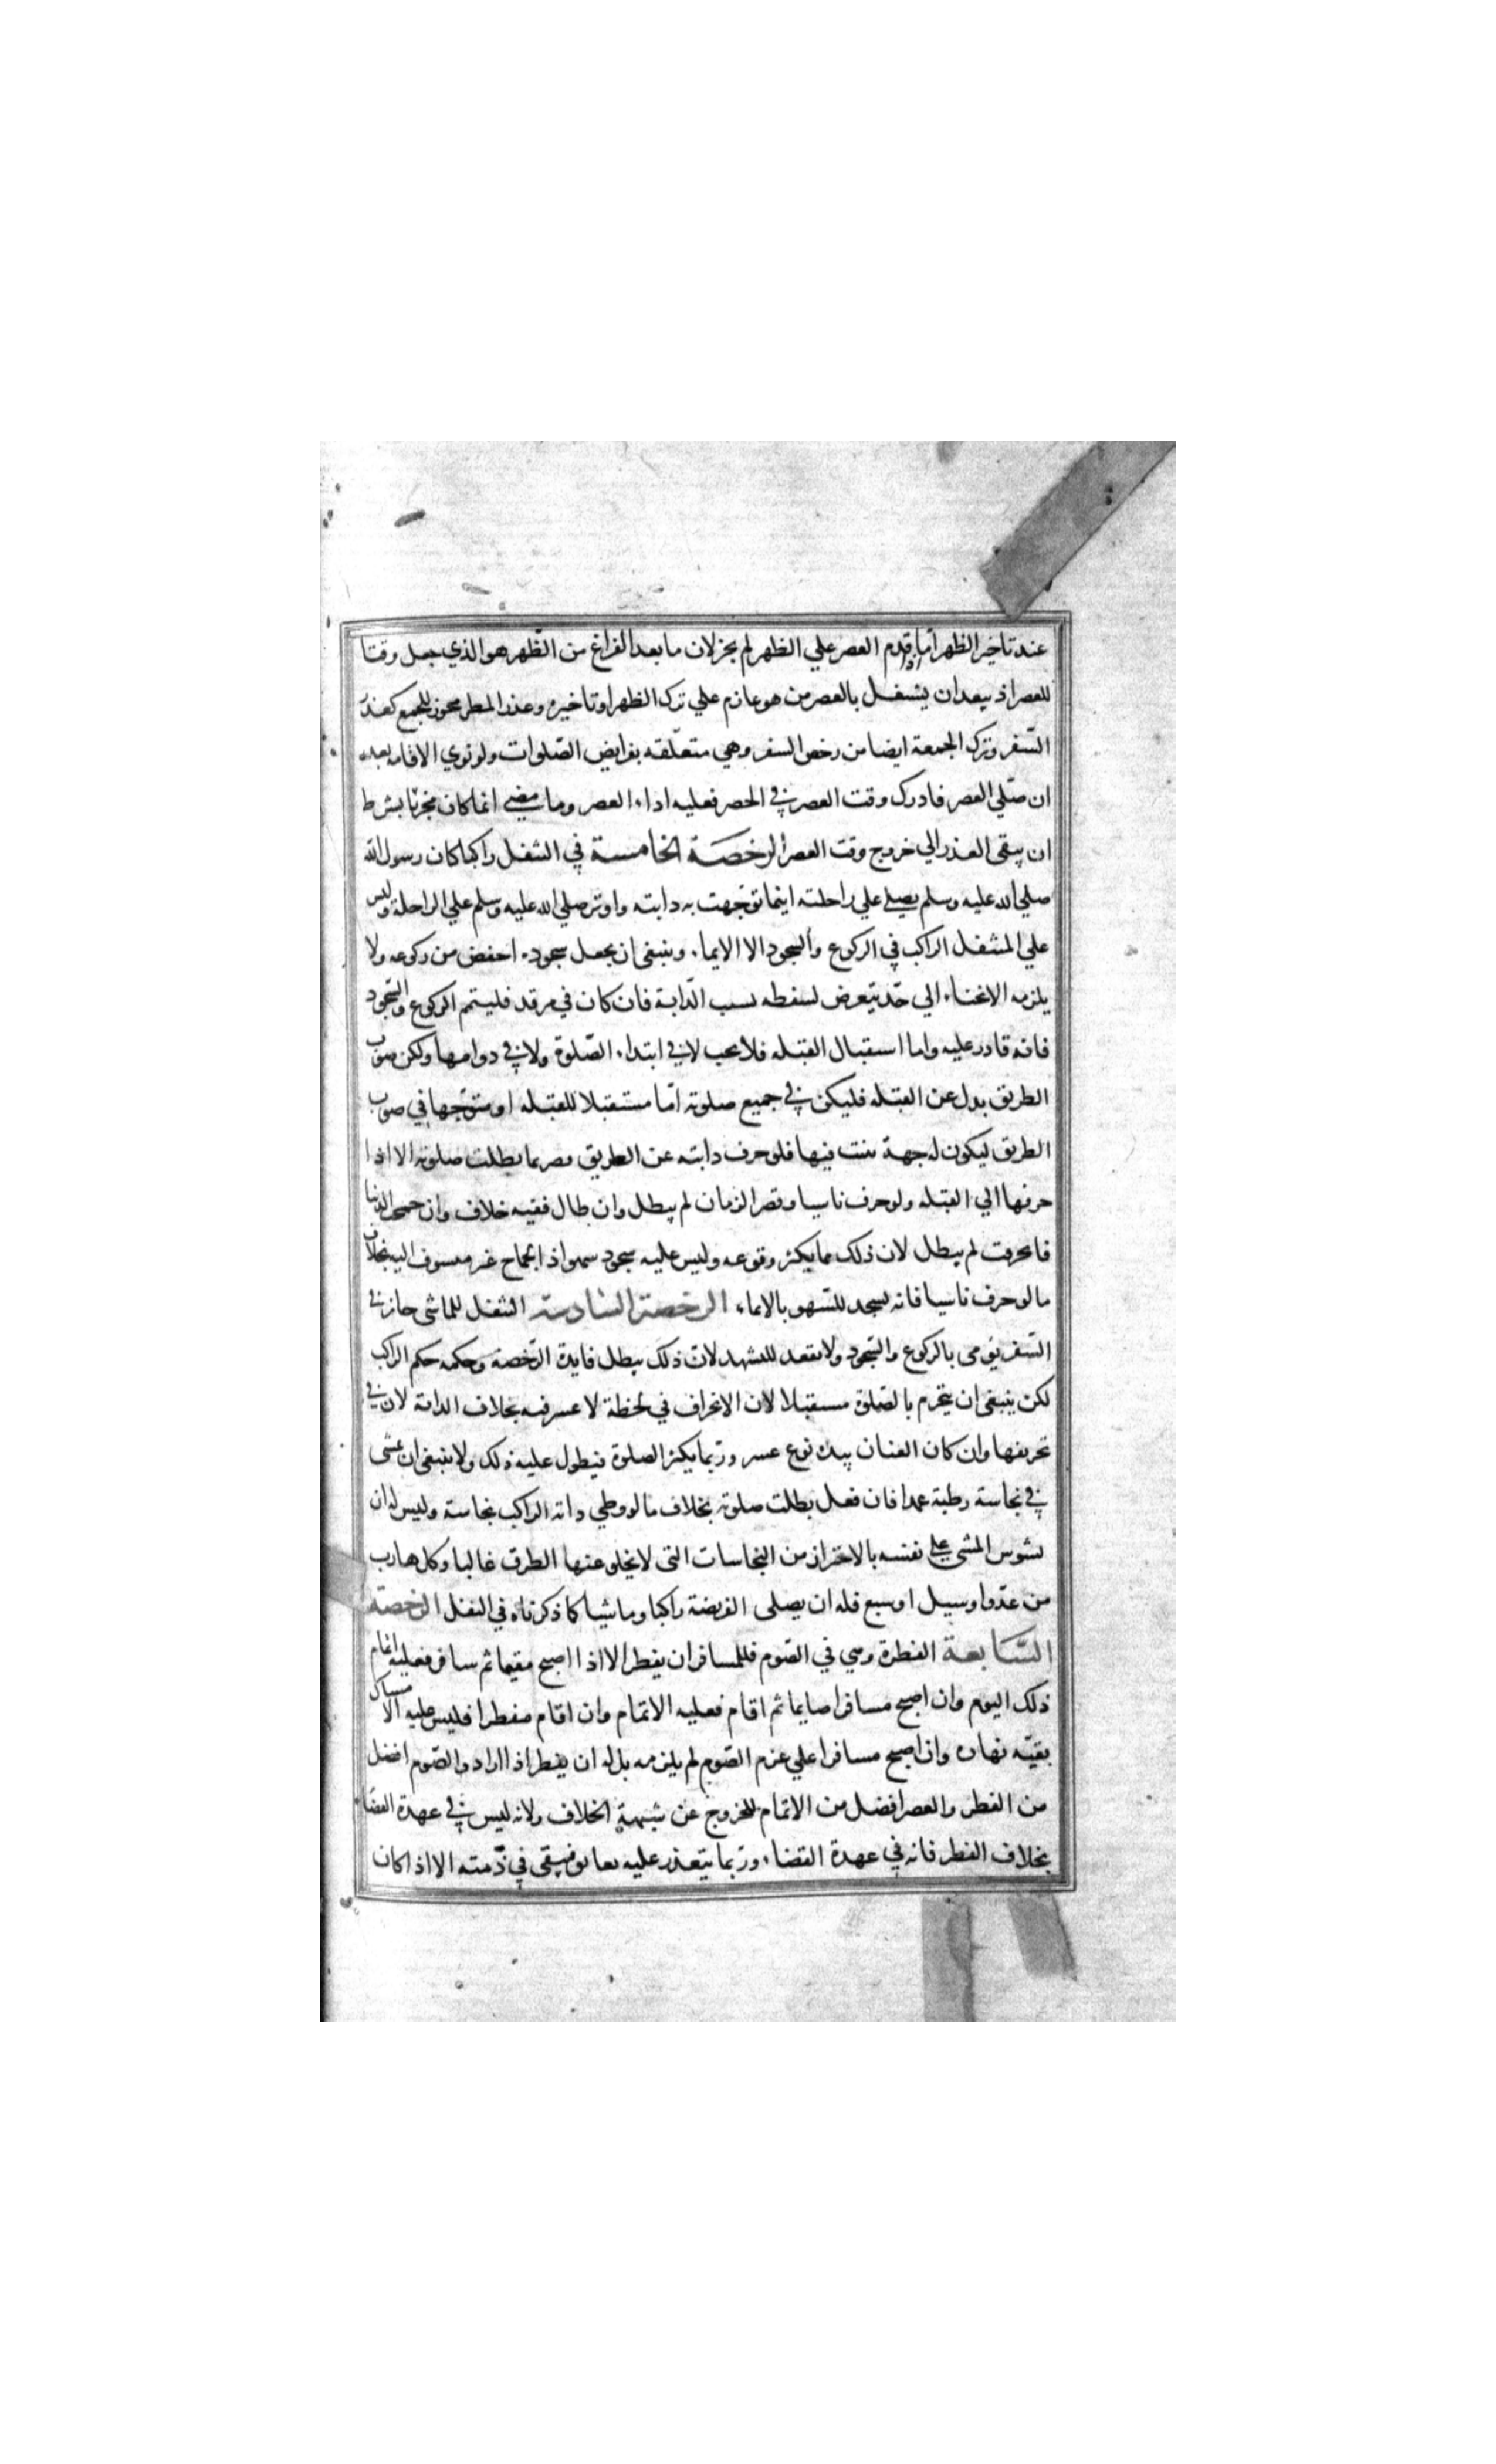 عند تاخير الظهر اما اذا قدم العصر علي الظهر لم يجز لان ما بعد الفراغ من الظهر هو الذي جعل وقتا
للعصر اذ يبعد ان يشتغل بالعصر من هو عازم علي ترك الظهر او تاخيره وعذر المطر مجوز للجمع كعذر
السفر وترك الجمعة ايضا من رخص السفر وهي متعلقه بفرايض الصلوات ولو نوي الاقامه بعد
ان صلي العصر فادرك وقت العصر في الحصر فعليه اداء العصر وما مضي انما كان مجزئا بشرط
ان يبقى العذر الي خروج وقت العصر الرخصة الخامسة في التنفل راكبا كان رسول الله
صلي الله عليه وسلم يصلي علي راحلته اينما توجهت به دابته واوتر صلي الله عليه وسلم علي الراحلة وليس
علي المتنفل الراكب في الركوع والسجود الا الايماء وينبغي ان يجعل سجوده اخفض من ركوعه ولا
يلزمه الانحناء الي حد يتعرض لسقطه بسبب الدابة فان كان في مرقد فليتم الركوع والسجود
فانه قادر عليه واما استقبال القبله فلا يجب لا في ابتداء الصلوة ولا في دوامها ولكن صوب
الطريق بدل عن القبله فليكن في جميع صلوته اما مستقبلا للقبله او متوجها في صوب
الطريق ليكون له جهة يثبت فيها فلو حرف دابته عن الطريق بطلت صلوته الا اذا
حرفها الي القبله ولو حرف ناسيا وقصر الزمان لم يبطل وان طال ففيه خلاف وان جمحت الدابة
فانحرفت لم يبطل لان ذلك مما يكثر وقوعه وليس عليه سجود سهو اذ الجماح غير منسوب اليه بخلاف
ما لو حرف ناسيا فانه يسجد للسهو بالايماء الرخصة السادسة التنفل للماشى جاز في
السفر يومى بالركوع والسجود ولا يقعد للتشهد لان ذلك يبطل فايدة الرخصة وحكمه حكم الراكب
لكن ينبغي ان يتحرم بالصلوة مستقبلا لان الانحراف في لحظة لا عسر فيه بخلاف الدابة لان في
تحريفها وان كان العنان بيده نوع عسر وربما يكثر الصلوة فيطول عليه ذلك ولا ينبغي ان يمشى
في نجاسة رطبة عمدا فان فعل بطلت صلوته بخلاف ما لو وطي دابة الراكب نجاسة وليس له ان
يشوش المشي علي نفسه بالاحتراز من النجاسات التى لا يخلو عنها الطرق غالبا وكل هارب
من عدو او سيل او سبع فله ان يصلى الفريضة راكبا وماشيا كما ذكرناه في النفل الرخصة
السابعة الفطرة وهي في الصوم فللمسافر ان يفطر الا اذا اصبح مقيما ثم سافر فعليه اتمام
ذلك اليوم وان اصبح مسافرا صايما ثم اقام فعليه الاتمام وان اقام مفطرا فليس عليه الامساك
بقيّه نهاره وان اصبح مسافرا علي عزم الصوم لم يلزمه بل له ان يفطر اذا اراد والصوم افضل
من الفطر والعصر افضل من الاتمام للخروج عن شبهة الخلاف ولانه ليس في عهدة القضا
بخلاف الفطر فانه في عهدة القضاء وربما يتعذر عليه بعايق فيبقى في ذمته الا اذا كان